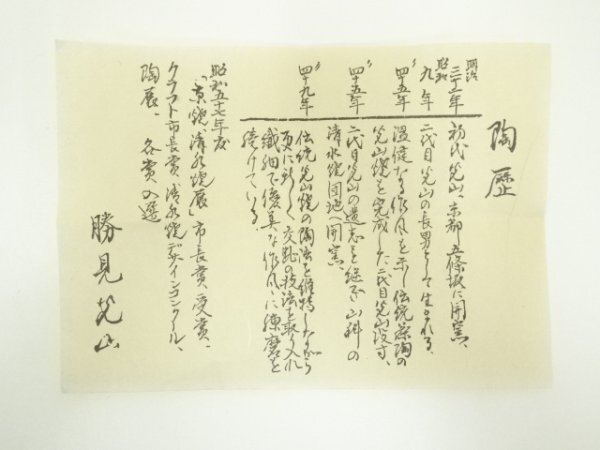 陶歴
明治三十一年 初代光山、京都五條坂に開窯、
昭和九年 二代目光山の長男として生まれる、
〃四十五年 温健なる作風を示し伝統藻陶の
光山焼を完成した二代目光山没す、
〃四十五年 二代目光山の遺志を継ぎ山科の
清水焼団地へ開窯
〃四十九年 伝統光山焼の陶法を維持しながら
更に新しく交趾の技法を取り入れ
繊細で優美な作風に練磨を
続けている
昭和五十七年度
「京焼・清水焼展」市長賞受賞、
クラフト市長賞清水焼デザインコンクール、
陶展、各賞入選
勝見光山